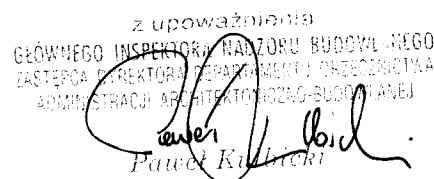 z upoważnienia
GŁÓWNEGO INSPEKTORA NADZORU BUDOWLANEGO
ZASTĘPCA DYREKTORA DEPARTAMENTU ORZECZNICTWA
ADMINISTRACJI ARCHITEKTONICZNO-BUDOWLANEJ
Paweł